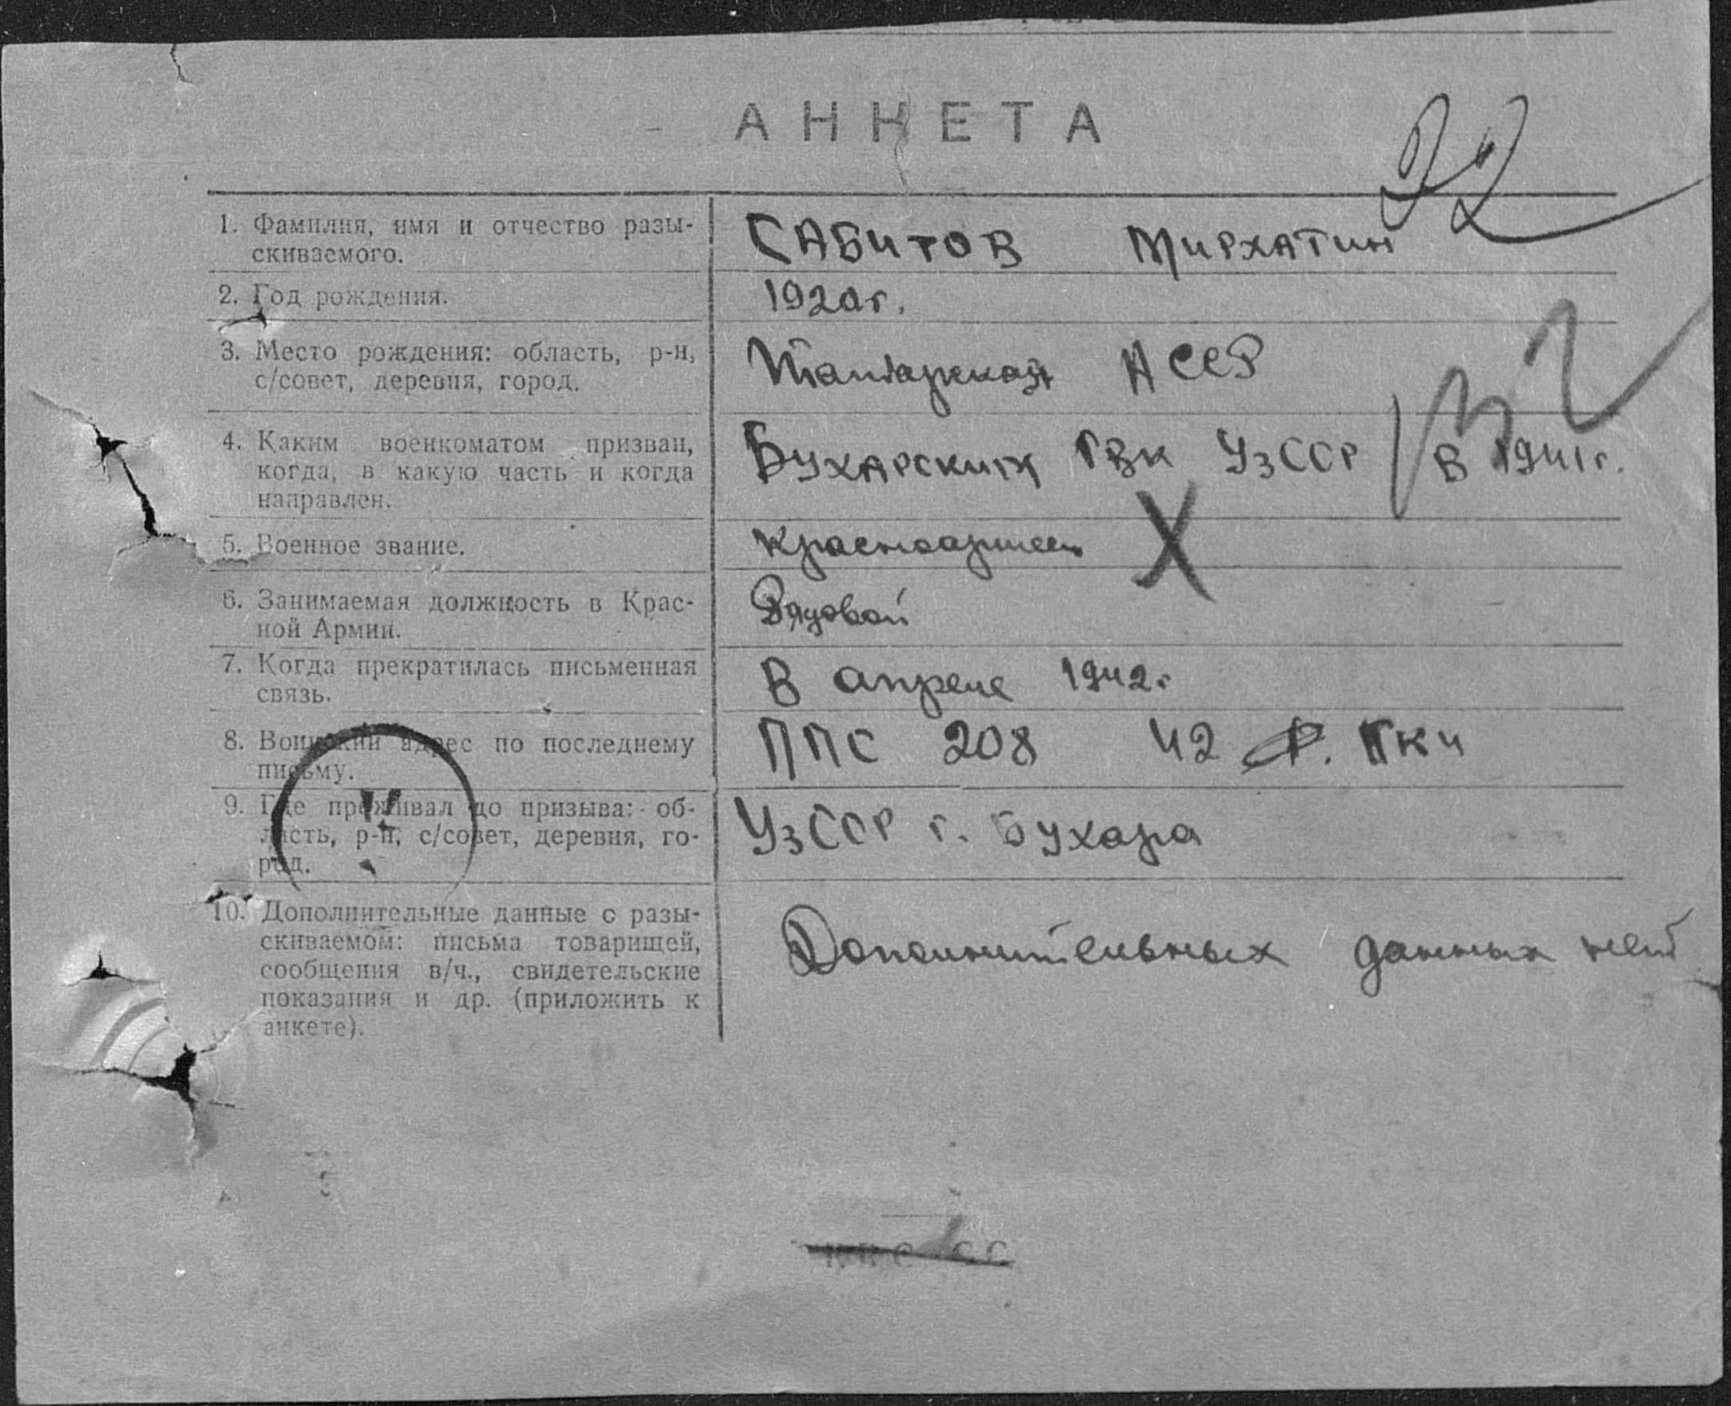 АНКЕТА
22
1. Фамилия, имя и отчество разы-
скиваемого.
САБИТОВ МИРХАТИН
2. Год рождения.
1920 г.
3. Место рождения: область, р-н,
с/совет, деревня, город.
Татарская АССР
4. Каким военкоматом призван,
когда, в какую часть и когда
направлен.
Бухарским ГВК УзССР / В 1941 г.
5. Военное звание.
Красноармеец
Х
6. Занимаемая должность в Крас-
ной Армии.
Рядовой
7. Когда прекратилась письменная
связь.
В апреле 1942 г
8. Воинский адрес по последнему
письму.
ППС 208 42
9. Где проживал до призыва: об-
ласть, р-н, с/совет, деревня, го-
род.
УзССР г. Бухара
10. Дополнительные данные о разы-
скиваемом: письма товарищей,
сообщения в/ч., свидетельские
показания и др. (приложить к
анкете).
Дополнительных данных нет